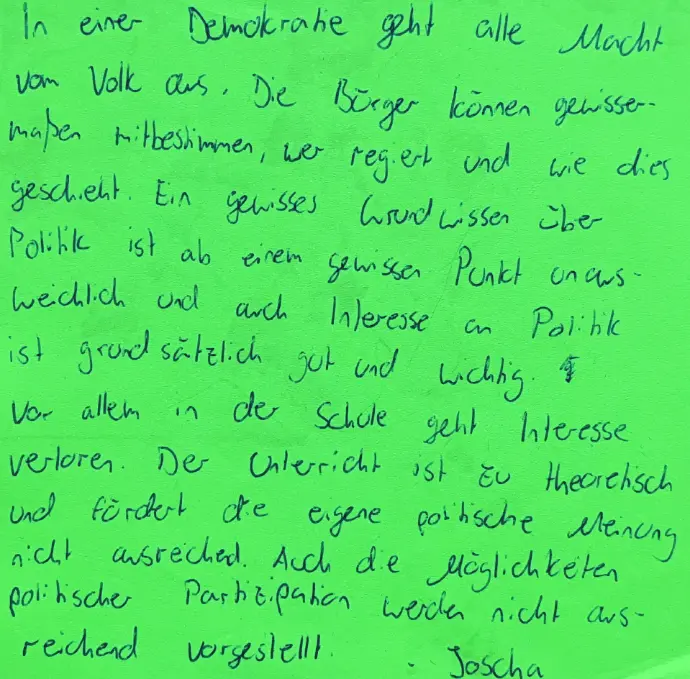 In einer Demokratie geht alle Macht
vom Volk aus. Die Bürger können gewisser-
maßen mitbestimmen, wer regiert und wie dies
geschieht. Ein gewisses Grundwissen über
Politik ist ab einem gewissen Punkt unaus-
weichlich und auch Interesse an Politik
ist grundsätzlich gut und wichtig.
Vor allem in der Schule geht Interesse
verloren. Der Unterricht ist zu theoretisch
und fördert die eigene politische Meinung
nicht ausreiched. Auch die Möglichkeiten
politischer Partizipation werden nicht aus-
reichend vorgestellt. - Joscha